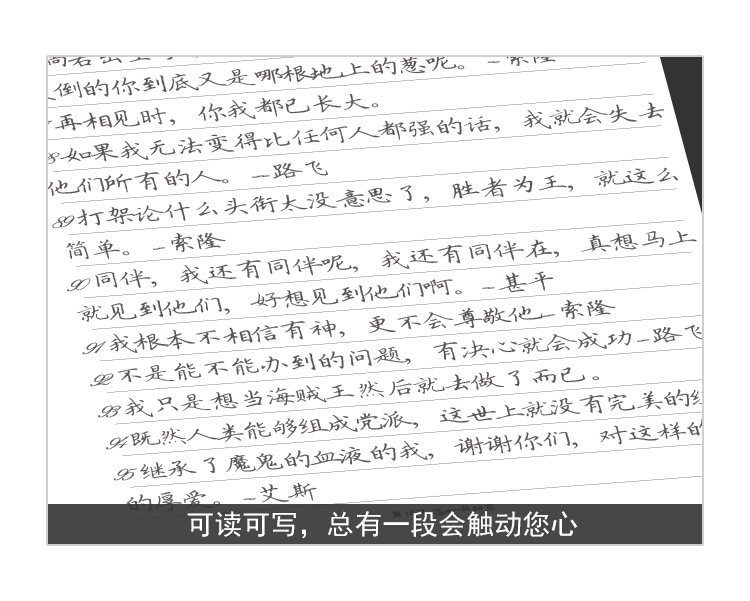 倒的你到底又是哪根地上的葱呢。-索隆
再相见时，你我都已长大。
如果我无法变得比任何人都强的话，我就会失去
他们所有的人。-路飞
89打架论什么头衔太没意思了，胜者为王，就这么
简单。-索隆
90同伴，我还有同伴呢，我还有同伴在，真想马上
就见到他们，好想见到他们啊。-甚平
91我根本不相信有神，更不会尊敬他-索隆
92不是能不能办到的问题，有决心就会成功-路飞
93我只是想当海贼王然后就去做了而已。
94既然人类能够组成党派，这世上就没有完美的
95继承了魔鬼的血液的我，谢谢你们，对这样的
的厚爱。-艾斯
可读可写，总有一段会触动您心